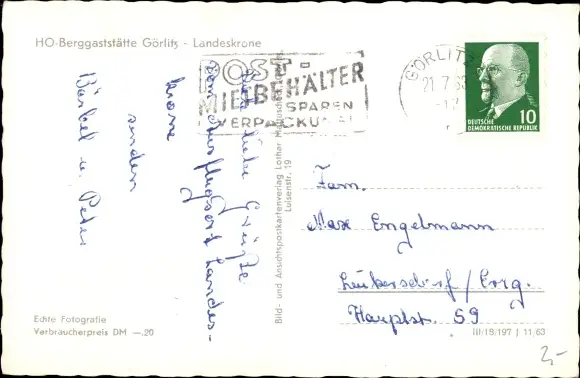 HO-Berggaststätte Görlitz - Landeskrone
POST-
MIETBEHÄLTER
SPAREN
VERPACKUNG
GÖRLITZ
21.7.63
10
DEUTSCHE
DEMOKRATISCHE REPUBLIK
liebe Grüße
vom Ausflugsort Landes-
krone
senden
Bärbel u. Peter
Bild- und Ansichtspostkartenverlag Lothar
Luisenstr. 19
Fam.
Max Engelmann
Leukersdorf/Erzg.
Hauptst. 59
Echte Fotografie
Verbraucherpreis DM —.20
III/18/197 | 11/63
2,-